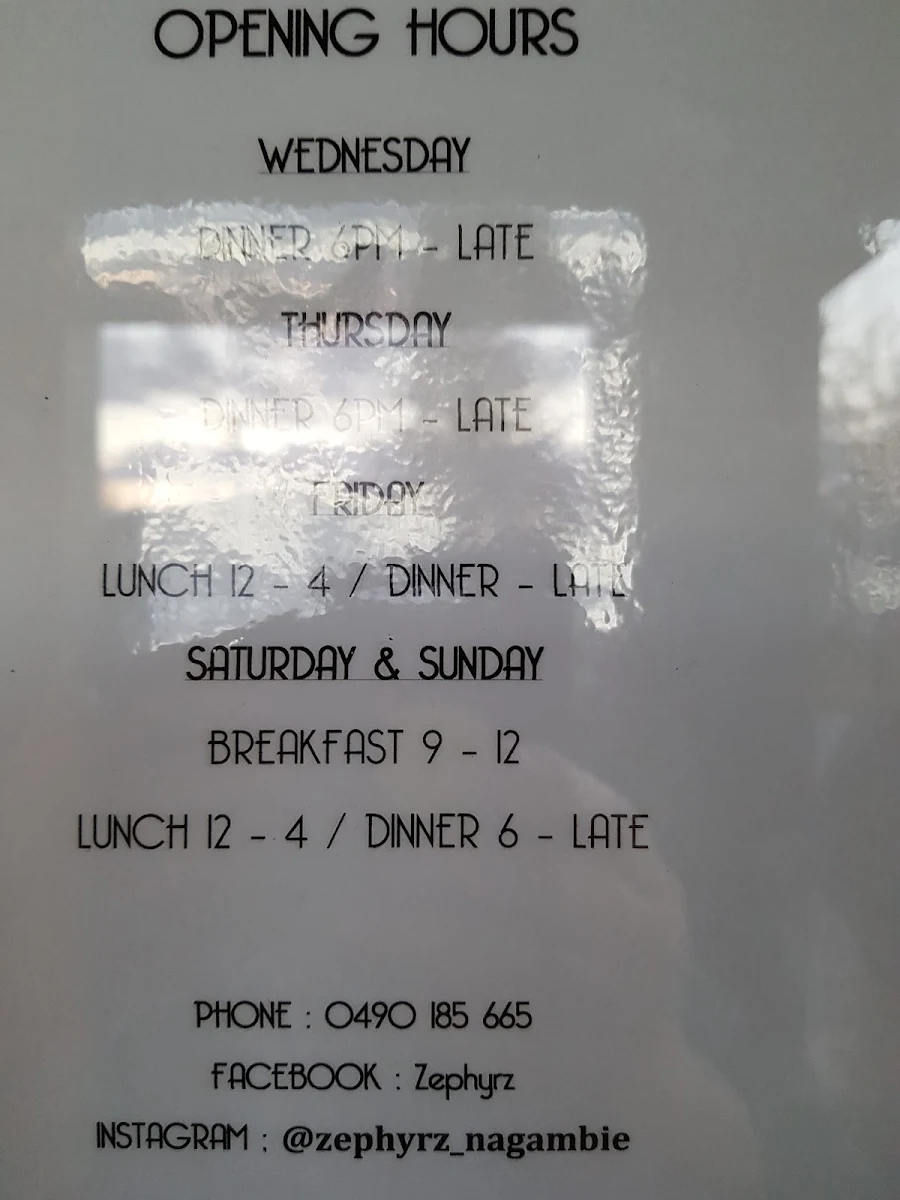 OPENING HOURS
WEDNESDAY
DINNER 6PM - LATE
THURSDAY
DINNER 6PM - LATE
FRIDAY
LUNCH 12 - 4 / DINNER - LATE
SATURDAY & SUNDAY
BREAKFAST 9 - 12
LUNCH 12 - 4 / DINNER 6 - LATE
PHONE : 0490 185 665
FACEBOOK : Zephyrz
INSTAGRAM : @zephyrz_nagambie